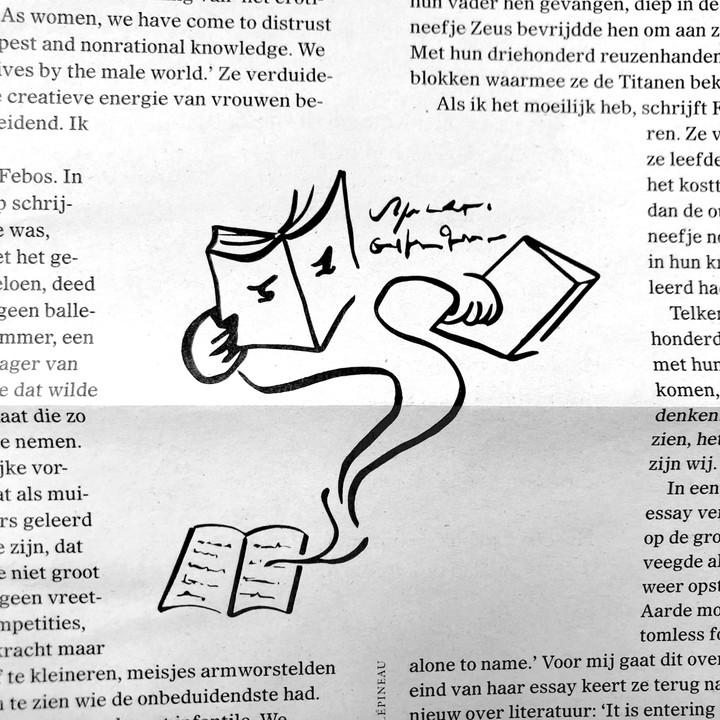 As women, we have come to distrust
pest and nonrational knowledge. We
ives by the male world.’ Ze verduide-
creatieve energie van vrouwen be-
eidend. Ik
Febos. In
schrij-
e was,
et het ge-
eloen, deed
geen balle-
mmer, een
ager van
e dat wilde
aat die zo
e nemen.
jke vor-
at als mui-
rs geleerd
e zijn, dat
e niet groot
geen vreet-
mpetities,
kracht maar
te kleineren, meisjes armworstelden
te zien wie de onbeduidendste had.
We
hun vader hen gevangen, diep in de
neefje Zeus bevrijdde hen om aan z
Met hun driehonderd reuzenhanden
blokken waarmee ze de Titanen bek
Als ik het moeilijk heb, schrijft F
ren. Ze v
ze leefde
het kostt
dan de o
neefje n
in hun k
leerd ha
Telke
honderd
met hun
komen,
denken
zien, het
zijn wij.
In een
essay ve
op de gro
veegde al
weer opst
Aarde mo
tomless f
alone to name.’ Voor mij gaat dit over
eind van haar essay keert ze terug na
nieuw over literatuur: ‘It is entering
ÉPINEAU